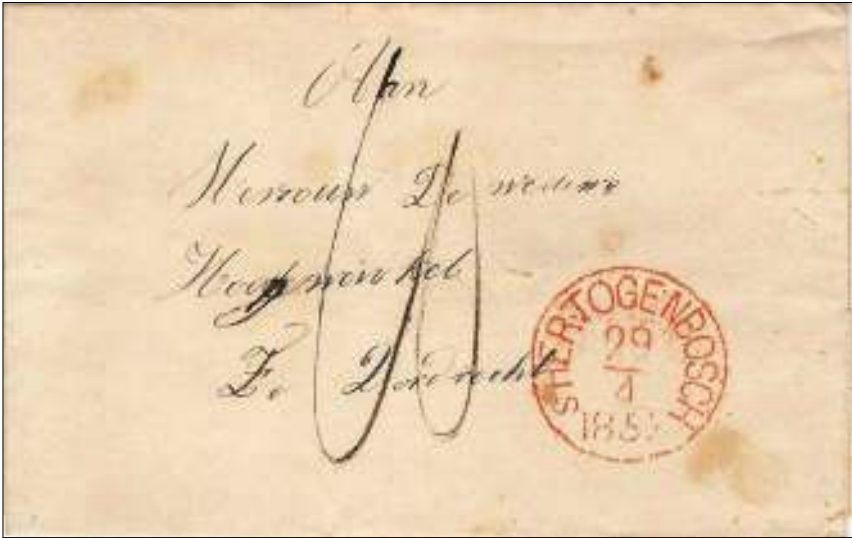 Aan
Mevrouw De weduwe
Hoogewinkel
Te Dordrecht
SHERTOGENBOSCH
29
4